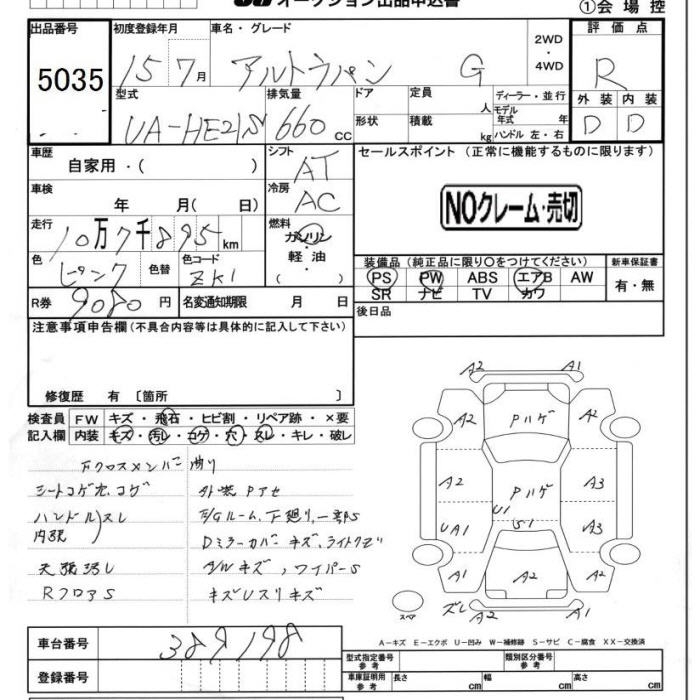 オークション出品申込書
①会場控
出品番号 初度登録年月 車名・グレード 2WD ・ 4WD 評価点
5035 15 7月 アルトラパン G R
型式 排気量 ドア 定員 人 ディーラー・並行 外装 内装
UA-HE21S 660cc 形状 積載 kg モデル年式 年 ハンドル 左・右 D D
車歴 自家用・( ) シフト AT セールスポイント (正常に機能するものに限ります)
車検 年 月( 日) 冷房 AC
NOクレーム・売切
走行 10万7千895km 燃料 ガソリン・軽油 ( )
装備品(純正品に限り○をつけてください) 新車保証書
色 ピンク 色替 色コード ZK1
PS PW ABS エアB AW 有・無
SR ナビ TV カワ
R券 9080円 名変通知期限 月 日
後日品
注意事項申告欄(不具合内容等は具体的に記入して下さい)
修復歴 有〔箇所 〕
検査員 FW キズ・飛石・ヒビ割・リペア跡・×要
記入欄 内装 キズ・汚レ・コゲ・穴・スレ・キレ・破レ
FクロスメンバE曲り
シートコゲ穴、コゲ 外装Pアセ
ハンドル)スレ E/Gルーム、下廻り、一部S
内張
Dミラーカバーキズ、ライトクモリ
天張汚レ A/Wキズ、ワイパーS
RフロアS キズUスリキズ
A2 A1
A2 Pハゲ A2
A2 Pハゲ A3
U1
UA1 S1 A3
A1 A2 A1
スペア ズレ A2 A2
A-キズ E-エクボ U-凹み W-補修跡 S-サビ C-腐食 XX-交換済
車台番号 389198
登録番号
型式指定番号 参考 類別区分番号 参考
車庫証明用 参考 長さ cm 幅 cm 高さ cm